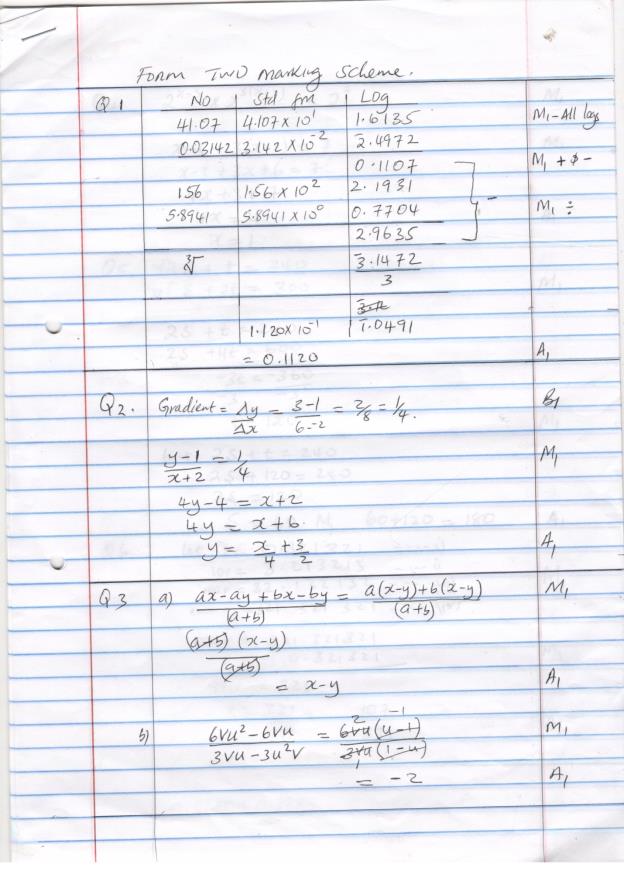 Form Two marking Scheme.
Q1 No Std fm Log
41.07 4.107 x 10¹ 1.6135 M₁ - All logs
0.03142 3.142 x 10⁻² 2̄.4972
0.1107 M₁ + & -
156 1.56 x 10² 2.1931
5.8941 5.8941 x 10⁰ 0.7704 M₁ ÷
2.9635
∛ 3̄.1472
3
1.120 x 10⁻¹ 1̄.0491
= 0.1120 A₁
Q2. Gradient = Δy/Δx = 3-1/6--2 = 2/8 = 1/4. B₁
y-1/x+2 = 1/4 M₁
4y-4 = x+2
4y = x+6.
y = x/4 + 3/2 A₁
Q3 a) ax-ay+bx-by/(a+b) = a(x-y)+b(x-y)/(a+b) M₁
(a+b)(x-y)/(a+b)
= x-y A₁
b) 6vu²-6vu/3vu-3u²v = 2 -1 6vu(u-1)/3vu(1-u) 1 M₁
= -2 A₁